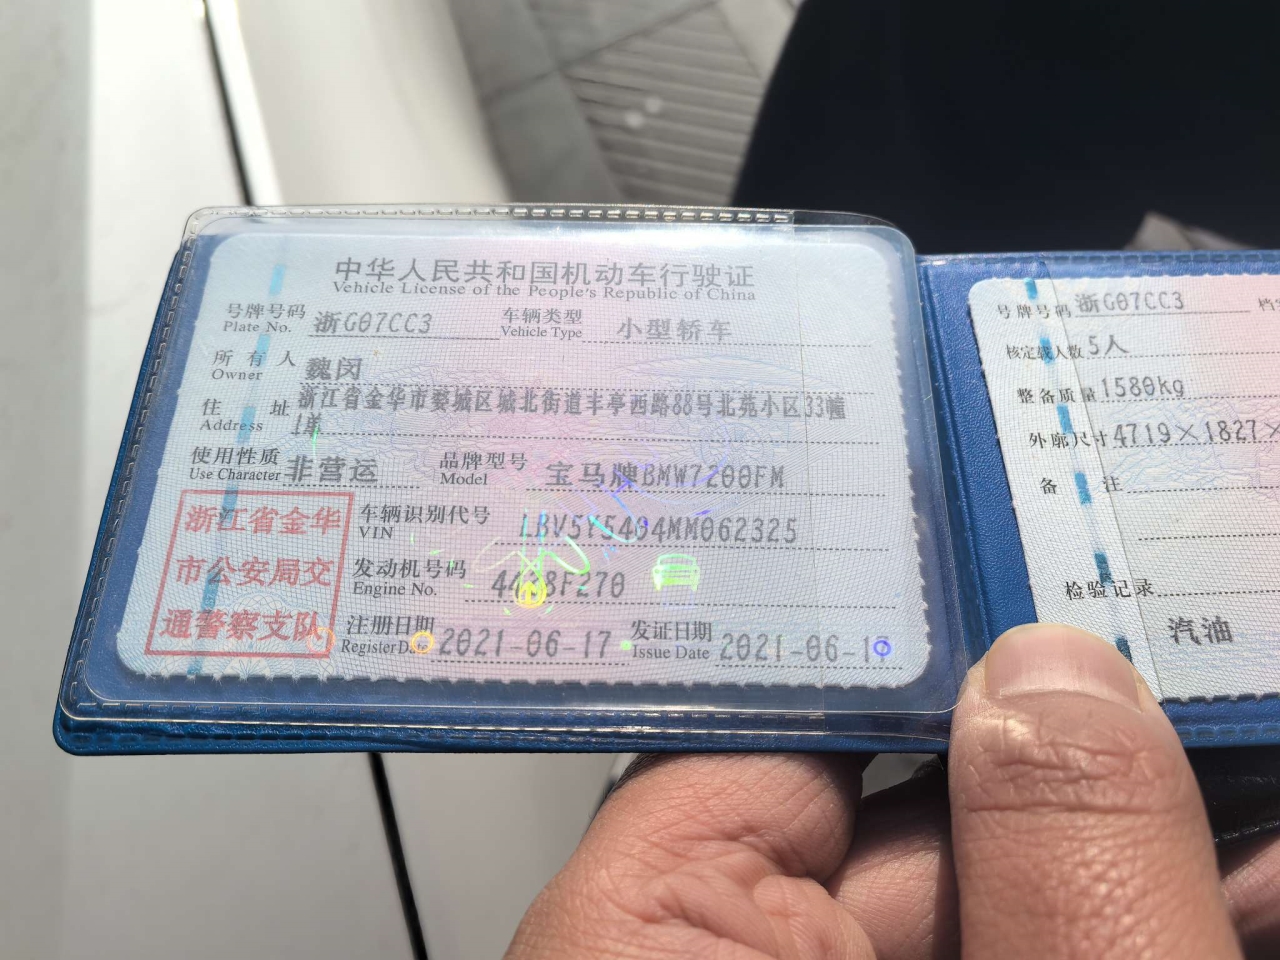 中华人民共和国机动车行驶证
Vehicle License of the People's Republic of China
号牌号码 浙G07CC3 车辆类型 小型轿车
Plate No. Vehicle Type
所有人 魏闵
Owner
住址 浙江省金华市婺城区城北街道丰亭西路88号北苑小区33幢
Address 1单
使用性质 非营运 品牌型号 宝马牌BMW7200FM
Use Character Model
浙江省金华
市公安局交
通警察支队
车辆识别代号 LBV5Y5404MM062325
VIN
发动机号码
Engine No.
注册日期 2021-06-17 发证日期 2021-06-17
Register Issue Date
号牌号码 浙G07CC3
核定载人数 5人
整备质量 1580kg
外廓尺寸 4719×1827×
备注
检验记录
汽油